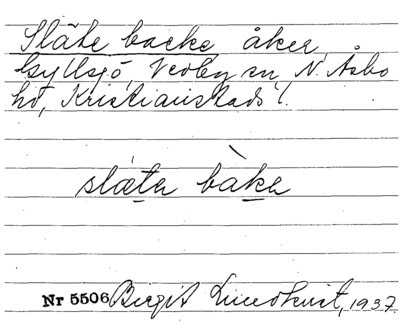 Släte backe åker,
Gyllsjö, Vedby sn, N. Åsbo
hd, Kristianstads l.
slæta bàka
Nr 5506 Birgit Lindkvist, 1937.